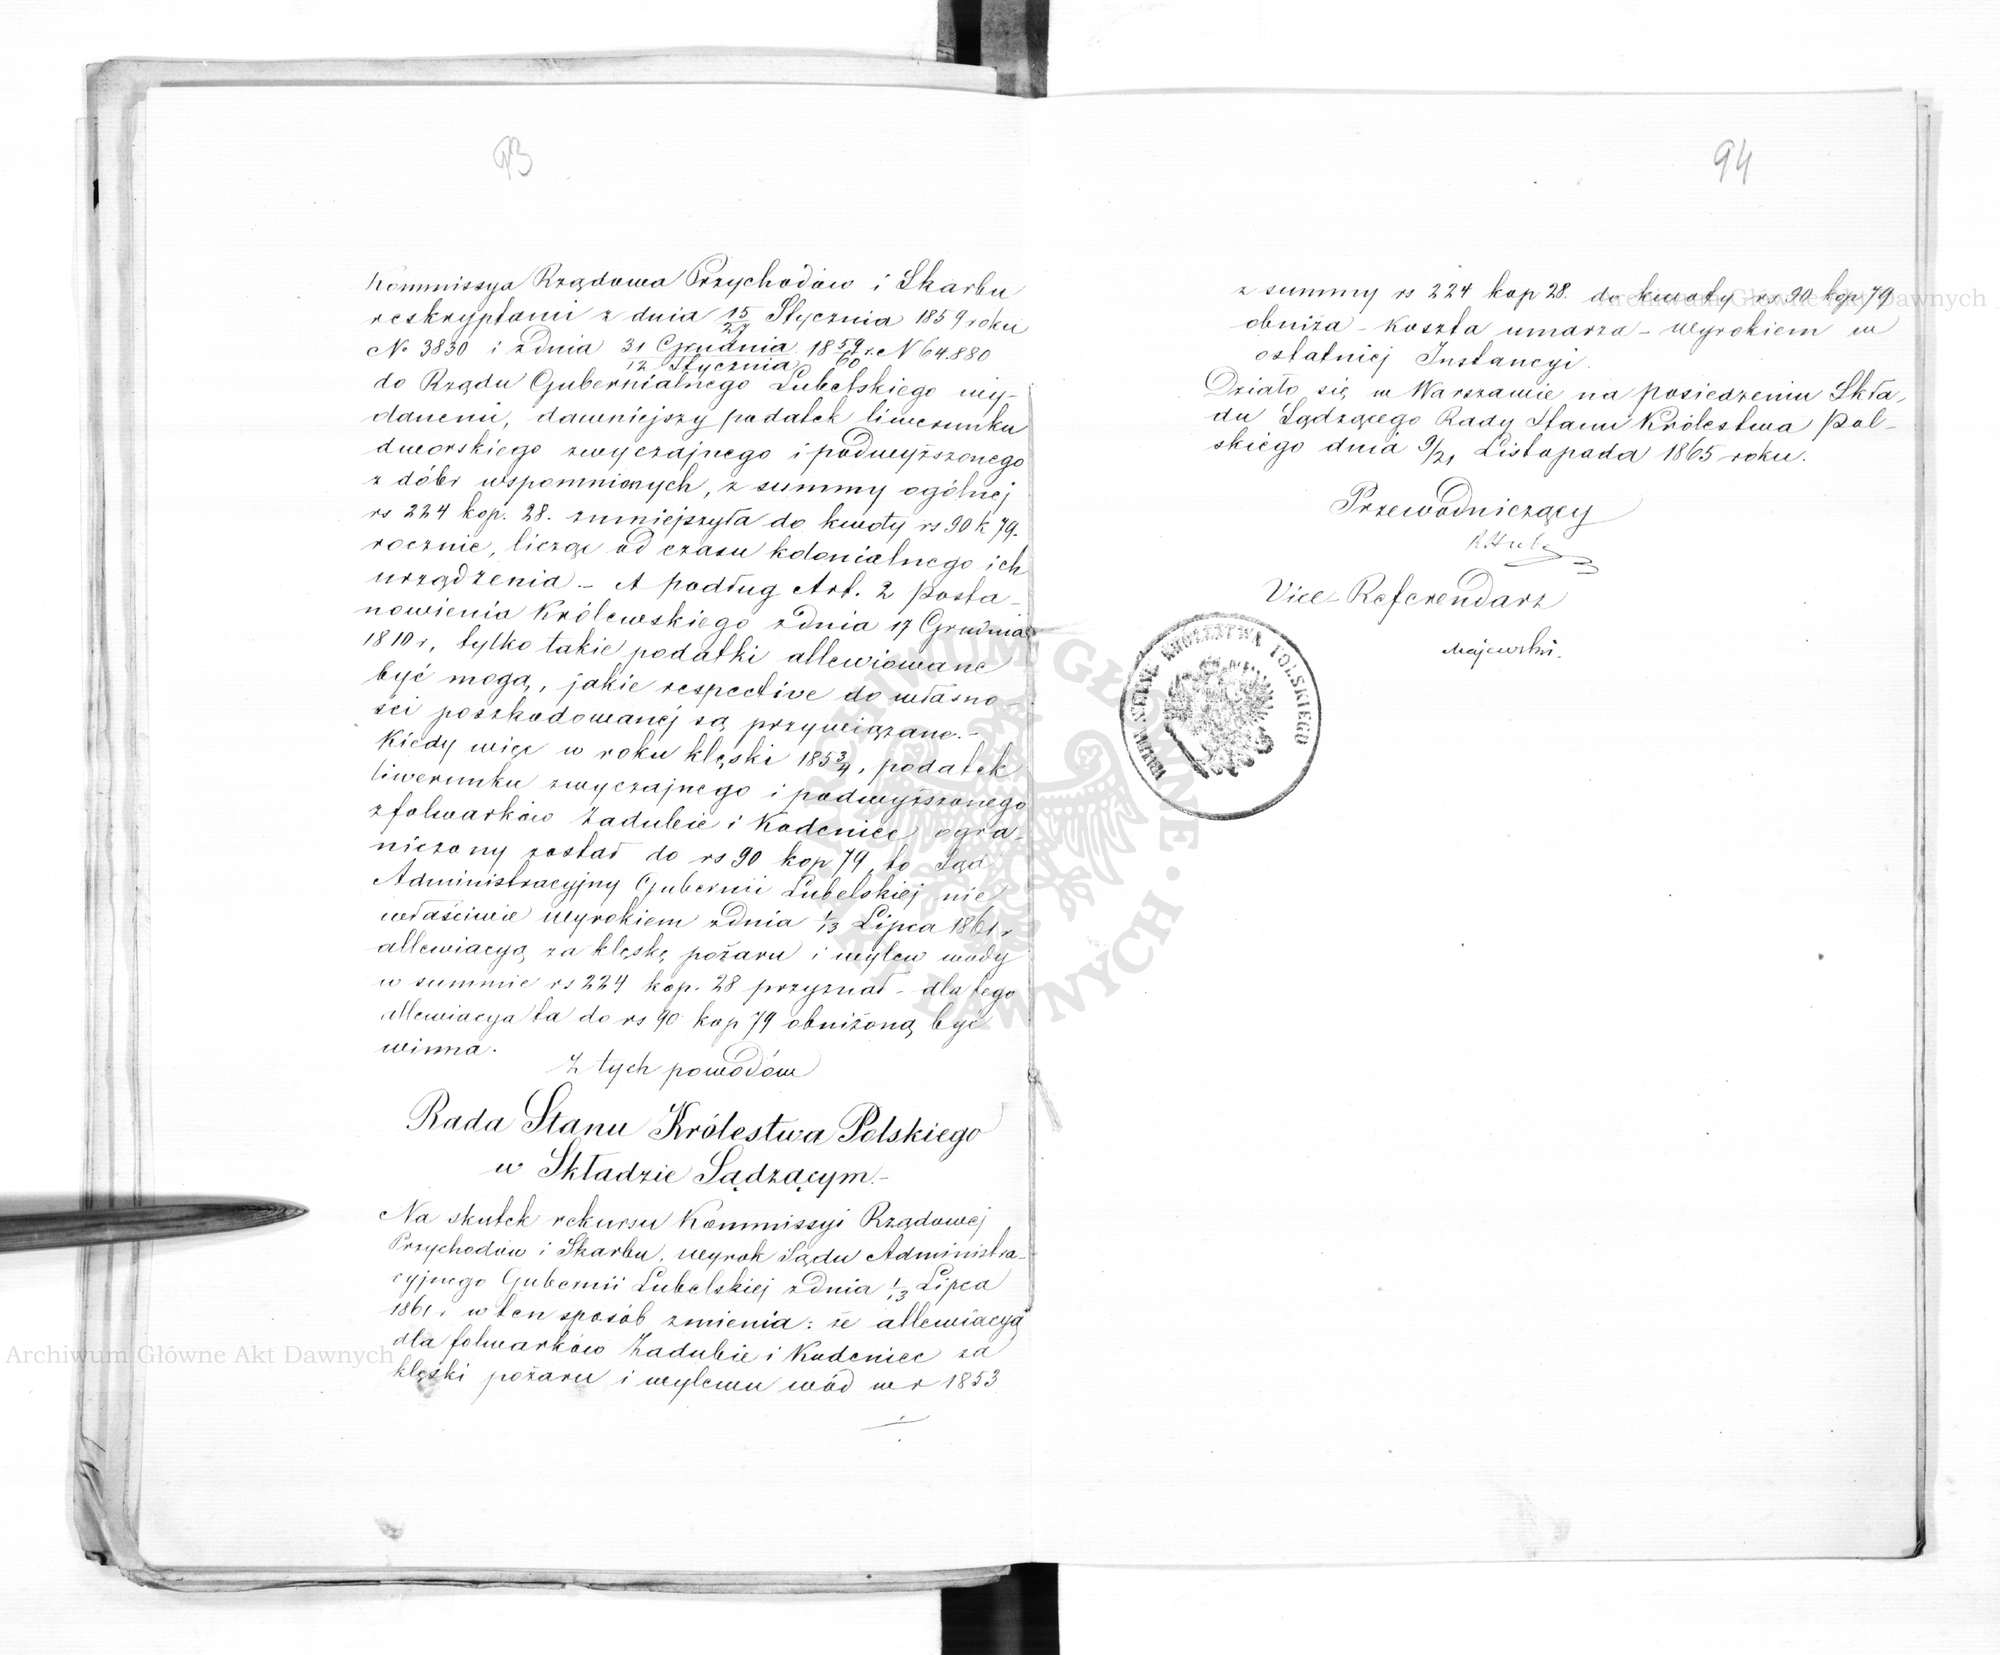 93
Kommissya Rządowa Przychodów i Skarbu
reskryptami z dnia 15/27 Stycznia 1859 roku
No 3830 i z dnia 31 Grudnia/12 Stycznia 1859/60 r. N 64.880
do Rządu Gubernialnego Lubelskiego wy-
danemi, dawniejszy podatek liwerunku
dworskiego zwyczajnego i podwyższonego
z dóbr wspomnionych, z summy ogólnej
rs 224 kop. 28. zmniejszyła do kwoty rs 90 k 79.
rocznie, licząc od czasu kolonialnego ich
urządzenia – A podług Art. 2 Posta-
nowienia Królewskiego z dnia 17 Grudnia
1810 r, tylko takie podatki allewiowane
być mogą, jakie respective do własno-
ści poszkodowanej są przywiązane.–
Kiedy więc w roku klęski 1853/4, podatek
liwerunku zwyczajnego i podwyższonego
z folwarków Zadubie i Kodeniec ogra-
niczony został do rs 90 kop 79, to Sąd
Administracyjny Gubernii Lubelskiej nie
właściwie wyrokiem z dnia 1/13 Lipca 1861 r
allewiacyą za klęskę pożaru i wylew wody
w summie rs 224 kop. 28 przyznał – dla tego
allewiacya ta do rs 90 kop 79 obniżoną być
winna.
Z tych powodów
Rada Stanu Królestwa Polskiego
w Składzie Sądzącym.–
Na skutek rekursu Kommissyi Rządowej
Przychodów i Skarbu, wyrok Sądu Administra-
cyjnego Gubernii Lubelskiej z dnia 1/13 Lipca
1861 r w ten sposób zmienia: że allewiacyą
dla folwarków Zadubie i Kodeniec za
klęski pożaru i wylewu wód w r 1853
94
z summy rs 224 kop 28. do kwoty rs 90 kop 79
obniża – Koszta umarza – Wyrokiem w
ostatniej Instancyi.
Działo się w Warszawie na posiedzeniu Skła-
du Sądzącego Rady Stanu Królestwa Pol-
skiego dnia 9/21 Listopada 1865 roku.
Przewodniczący
Vice-Referendarz
Majewski.
KRÓLESTWA POLSKIEGO
ARCHIWUM GŁÓWNE AKT DAWNYCH
Archiwum Główne Akt Dawnych
Archiwum Główne Akt Dawnych